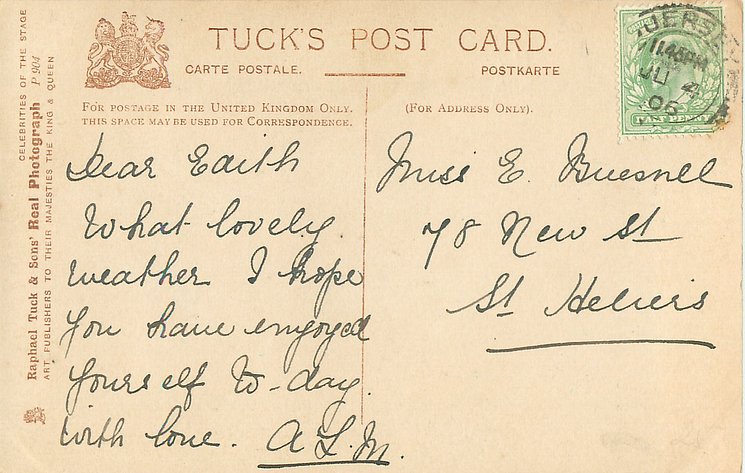 TUCK'S POST CARD.
CARTE POSTALE. POSTKARTE
FOR POSTAGE IN THE UNITED KINGDOM ONLY.
THIS SPACE MAY BE USED FOR CORRESPONDENCE.
(FOR ADDRESS ONLY).
Dear Edith
What lovely
weather I hope
you have enjoyed
yourself to-day.
with love. A.L.M.
Miss E. Buesnell
78 New St
St Heliers
11.45PM
JU 4
06
CELEBRITIES OF THE STAGE
Raphael Tuck & Sons' Real Photograph P 904
ART PUBLISHERS TO THEIR MAJESTIES THE KING & QUEEN